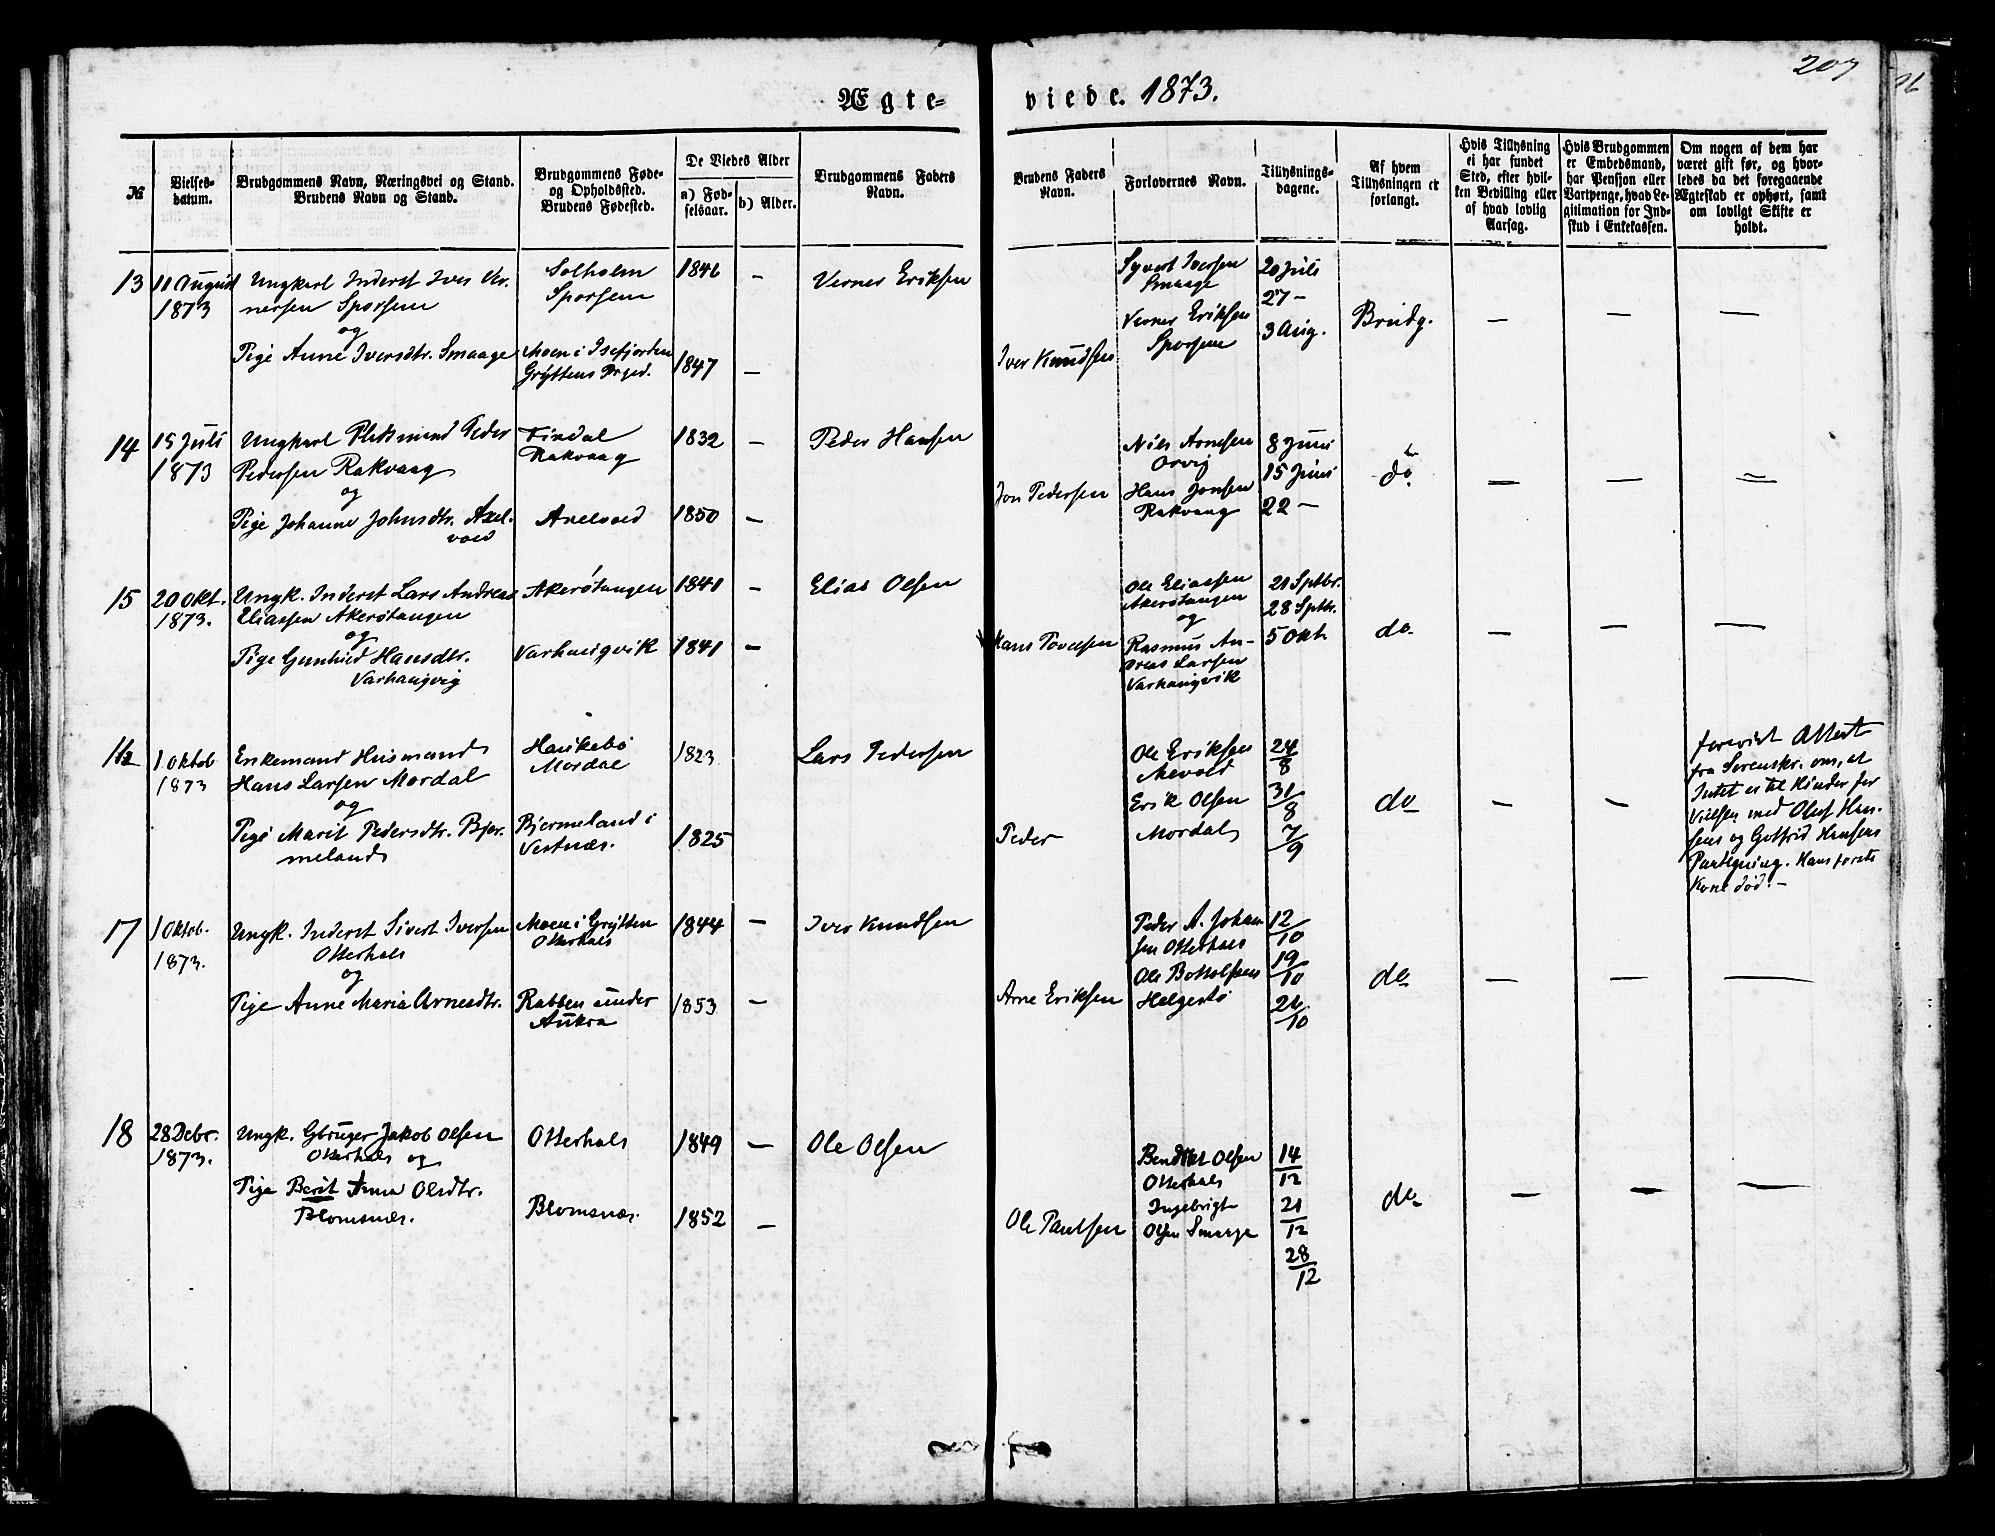 207
Ægte-
viede. 1873.
№
Vielses-
datum.
Brudgommens Navn, Næringsvei og Stand.
Brudens Navn og Stand.
Brudgommens Føde-
og Opholdssted.
Brudens Fødested.
De Viedes Alder
a) Fød-
selsaar.
b) Alder.
Brudgommens Faders
Navn.
Brudens Faders
Navn.
Forlovernes Navn.
Tillysnings-
dagene.
Af hvem
Tillysningen er
forlangt.
Hvis Tillysning
ei har fundet
Sted, efter hvil-
ken Bevilling eller
af hvad lovlig
Aarsag.
Hvis Brudgommen
er Embedsmand,
har Pension eller
Vartpenge, hvad Le-
gitimation for Ind-
skud i Enkekassen.
Om nogen af dem har
været gift før, og hvor-
ledes da det foregaaende
Ægteskab er ophørt, samt
om lovligt Skifte er
holdt.
13
11 August
1873
Ungkarl Inderst Iver Ver-
nersen Sporsem
og
Pige Anne Iversdtr. Smaage
Solholm
Sporsem
Moen i Isefjorden
Gryttens Prgjd.
1846 —
1847 —
Verner Eriksen
Iver Knudsen
Syvert Iversen
Smaage
Verner Eriksen
Sporsem
20 Juli
27 —
3 Aug.
Brudg.
— — —
14
15 Juli
1873
Ungkarl Pladsmand Peder
Pedersen Rakvaag
og
Pige Johanne Johnsdtr. Axel-
vold
Findal
Rakvaag
Axelvold
1832 —
1850 —
Peder Hansen
Jon Pedersen
Niels Arnesen
Orvig
Hans Jonsen
Rakvaag
8 Juni
15 Juni
22 —
do
— — —
15
20 Okt.
1873.
Ungk. Inderst Lars Andreas
Eliassen Akerøtangen
og
Pige Gunhild Hansdtr.
Varhaugvig
Akerøtangen
Varhaugvik
1841 —
1841 —
Elias Olsen
Hans Tovelsen
Ole Eliassen
Akerøtangen
og
Rasmus An-
dreas Larsen
Varhaugvik
21 Sptbr.
28 Sptbr.
5 Okt.
do
— — —
16
1 Oktob
1873
Enkemand Husmand
Hans Larsen Mordal
og
Pige Marit Pedersdtr. Bjer-
meland
Haukebø
Mordal
Bjermeland i
Vestnæs.
1823
1825
Lars Pedersen
Peder
Ole Eriksen
Mevold
Erik Olsen
Mordal
24/8
31/8
7/9
do
— —
forevist Attest
fra Sorenskr. om, at
Intet er til Hinder for
Vielsen med Oluf Han-
sens og Gotfrid Hansens
Hans første
Kone død. —
17
1 Oktob.
1873.
Ungk. Inderst Sivert Iversen
Otterhals
og
Pige Anne Maria Arnesdtr.
Moen i Grytten
Otterhals
Rabben under
Aukra
1844 —
1853 —
Iver Knudsen
Arne Eriksen
Peder A. Johan
sen Otterhals
Ole Bottolfsen
Helgestø
12/10
19/10
26/10
do
— — —
18
28 Debr.
1873.
Ungk. Gbruger Jakob Olsen
Otterhals og
Pige Berit Anna Olsdtr.
Blomsnæs.
Otterhals
Blomsnæs.
1849 —
1852 —
Ole Olsen
Ole Paulsen
Bendikt Olsen
Otterhals
Ingebrigt
Olsen Smaage
14/12
21/12
28/12
do
— — —